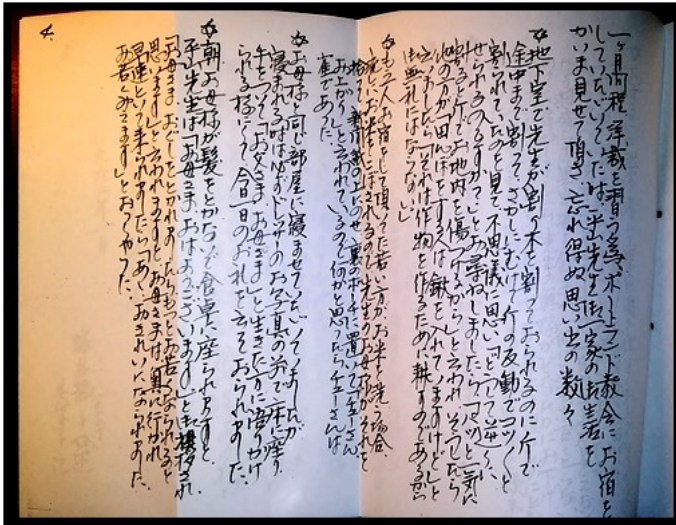 一ヶ月間程洋裁を習う為、ポートランド教会にお宿を
していたゞいていた時は、平山先生御一家の御生活を
かいま見せて頂き忘れ得ぬ思い出の数々
☆地下室で先生が割り木を割っておられるのに斤で
途中まで割って、さかしまむけて斤の反動でコツ〱と
割られていたのを見て不思議に思い、「どうして逆に
せられるのですか?」とお尋ねしましたら「マツと一気に
割ると斤でお地内を傷つけるから」と言われ、そうしたら
他の方が「田んぼをする人は鍬を入れていますけど」と
云いましたら「それは作物を作るために耕すのであるから
御無礼にはならない」
☆もう一人お宿をして頂いてた若い方がお米を洗う場合
流しにお米をこぼされるので、先生のお母様がそれを
拾って、新聞紙の上にのせ、裏のポーチに置いて「チューさん
お上がり」と言われているので何かと思ったらチューさんは
雀であった。
☆お母様と同じ部屋に寝ませていたゞいてましたが
寝まれる時は必ずドレッサーのお写真の前で床に座り
手をついて「お父さま、お母さま」と生きた方に語りかけ
られる様にして今日一日のお礼を云っておられました。
☆朝、お母様が髪をとかないで食卓に座られますと
平山先生は「お母さま、おはようございます」と御挨拶され
「お母さま、おぐしをとかれましたらもっとお若くなられると
思います」と言われますと、お母さまは奥に行かれ
早速といて来られましたら「あゝおきれいになられました。
お若くみえます」とおっしゃった。
4.